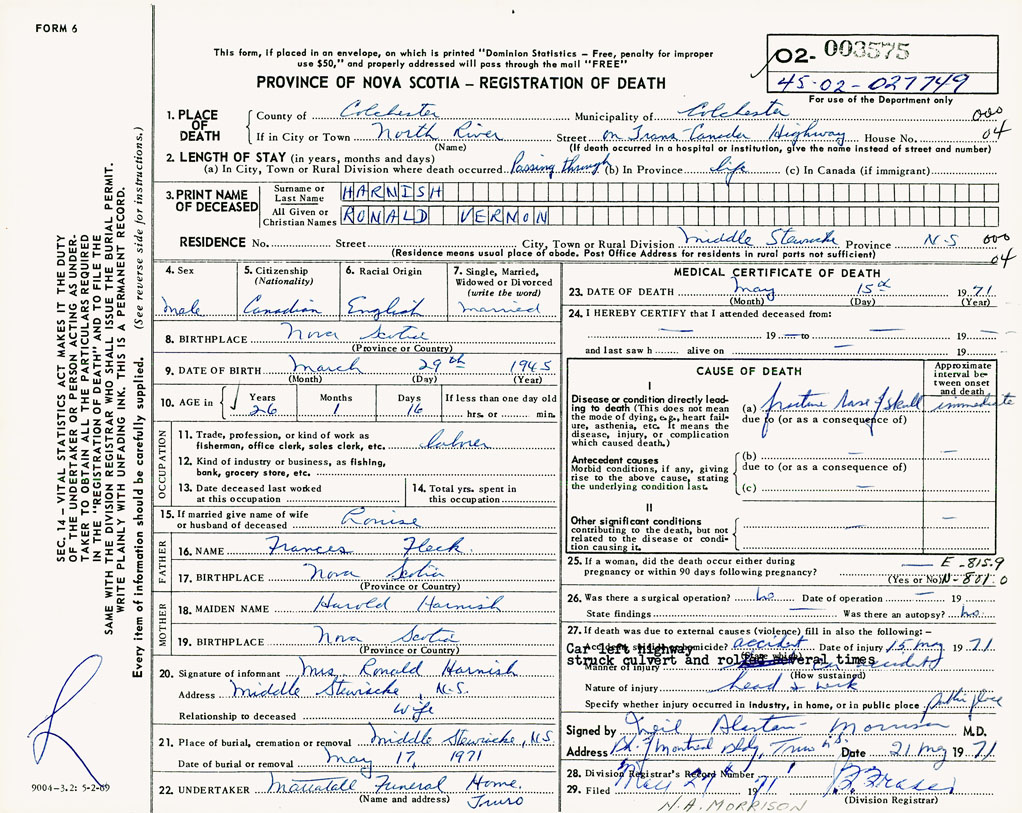 FORM 6
This form, if placed in an envelope, on which is printed "Dominion Statistics – Free, penalty for improper
use $50," and properly addressed will pass through the mail "FREE"
PROVINCE OF NOVA SCOTIA – REGISTRATION OF DEATH
02- 003575
45-02-027749
For use of the Department only
SEC. 14 – VITAL STATISTICS ACT MAKES IT THE DUTY
OF THE UNDERTAKER OR PERSON ACTING AS UNDER-
TAKER TO OBTAIN ALL THE PARTICULARS REQUIRED
IN THE "REGISTRATION OF DEATH" AND TO FILE THE
SAME WITH THE DIVISION REGISTRAR WHO SHALL ISSUE THE BURIAL PERMIT.
WRITE PLAINLY WITH UNFADING INK. THIS IS A PERMANENT RECORD.
Every item of information should be carefully supplied. (See reverse side for instructions.)
1. PLACE OF DEATH County of Colchester Municipality of Colchester 000
If in City or Town North River Street on Trans-Canada Highway House No. 04
(Name) (If death occurred in a hospital or institution, give the name instead of street and number)
2. LENGTH OF STAY (in years, months and days)
(a) In City, Town or Rural Division where death occurred Passing through (b) In Province life (c) In Canada (if immigrant)
3. PRINT NAME OF DECEASED Surname or Last Name HARNISH
All Given or Christian Names RONALD VERNON
RESIDENCE No. Street City, Town or Rural Division Middle Stewiacke Province N.S 000
(Residence means usual place of abode. Post Office Address for residents in rural parts not sufficient) 04
4. Sex Male
5. Citizenship (Nationality) Canadian
6. Racial Origin English
7. Single, Married, Widowed or Divorced (write the word) Married
8. BIRTHPLACE Nova Scotia
(Province or Country)
9. DATE OF BIRTH March 29th 1945
(Month) (Day) (Year)
10. AGE in Years 26 Months 1 Days 16 If less than one day old hrs. or min.
OCCUPATION
11. Trade, profession, or kind of work as
fisherman, office clerk, sales clerk, etc. labner
12. Kind of industry or business, as fishing,
bank, grocery store, etc.
13. Date deceased last worked at this occupation
14. Total yrs. spent in this occupation
15. If married give name of wife
or husband of deceased Louise
FATHER
16. NAME Frances Fleck
17. BIRTHPLACE Nova Scotia
(Province or Country)
MOTHER
18. MAIDEN NAME Harold Harnish
19. BIRTHPLACE Nova Scotia
(Province or Country)
20. Signature of informant Mrs. Ronald Harnish
Address Middle Stewiacke, N.S.
Relationship to deceased Wife
21. Place of burial, cremation or removal Middle Stewiacke, N.S.
Date of burial or removal May 17, 1971
22. UNDERTAKER Mattatall Funeral Home.
(Name and address) Truro
9004-3.2: 5-2-69
MEDICAL CERTIFICATE OF DEATH
23. DATE OF DEATH May 15th 1971
(Month) (Day) (Year)
24. I HEREBY CERTIFY that I attended deceased from:
— 19 — to — 19 —
and last saw h alive on — 19 —
CAUSE OF DEATH
Approximate interval between onset and death
I
Disease or condition directly leading to death (This does not mean the mode of dying, e.g., heart failure, asthenia, etc. It means the disease, injury, or complication which caused death.)
(a) fracture base of skull immediate
due to (or as a consequence of)
Antecedent causes
Morbid conditions, if any, giving rise to the above cause, stating the underlying condition last.
(b) —
due to (or as a consequence of)
(c) —
II
Other significant conditions
contributing to the death, but not related to the disease or condition causing it.
25. If a woman, did the death occur either during — E-815.9
pregnancy or within 90 days following pregnancy? (Yes or No) N-801.0
26. Was there a surgical operation? no Date of operation —
State findings — Was there an autopsy? no.
27. If death was due to external causes (violence) fill in also the following: –
Accident, suicide or homicide? accident Date of injury 15 May 1971
(State which)
Car left highway
struck culvert and rolled several times
Manner of injury
(How sustained)
Nature of injury head & neck
Specify whether injury occurred in industry, in home, or in public place public place
Signed by Neil Alastair Morrison M.D.
Address Bk of Montreal Bldg, Truro N.S. Date 21 May 1971
28. Division Registrar's Record Number
29. Filed May 27 1971
(Division Registrar)
N.A. MORRISON